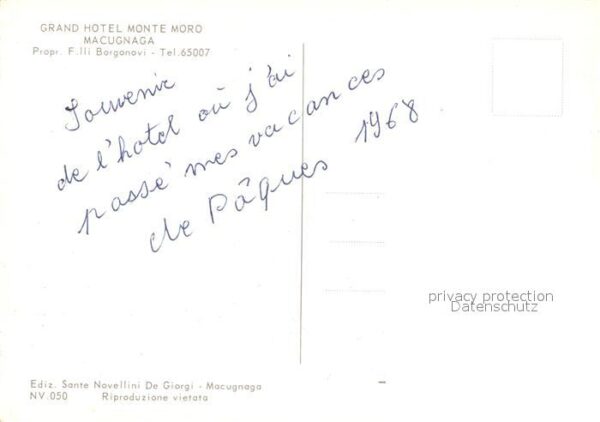 GRAND HOTEL MONTE MORO
MACUGNAGA
Propr. F.lli Borgonovi - Tel. 65007
Souvenir
de l'hotel où j'ai
passé mes vacances
de Pâques 1968
privacy protection
Datenschutz
Ediz. Sante Novellini De Giorgi - Macugnaga
NV. 050 Riproduzione vietata